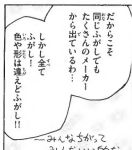 だからこそ
同じふがしでも
たくさんのメーカー
から出ているわ…
しかし全て
ふがし!
色や形は違えどふがし!!
―みんなちがって